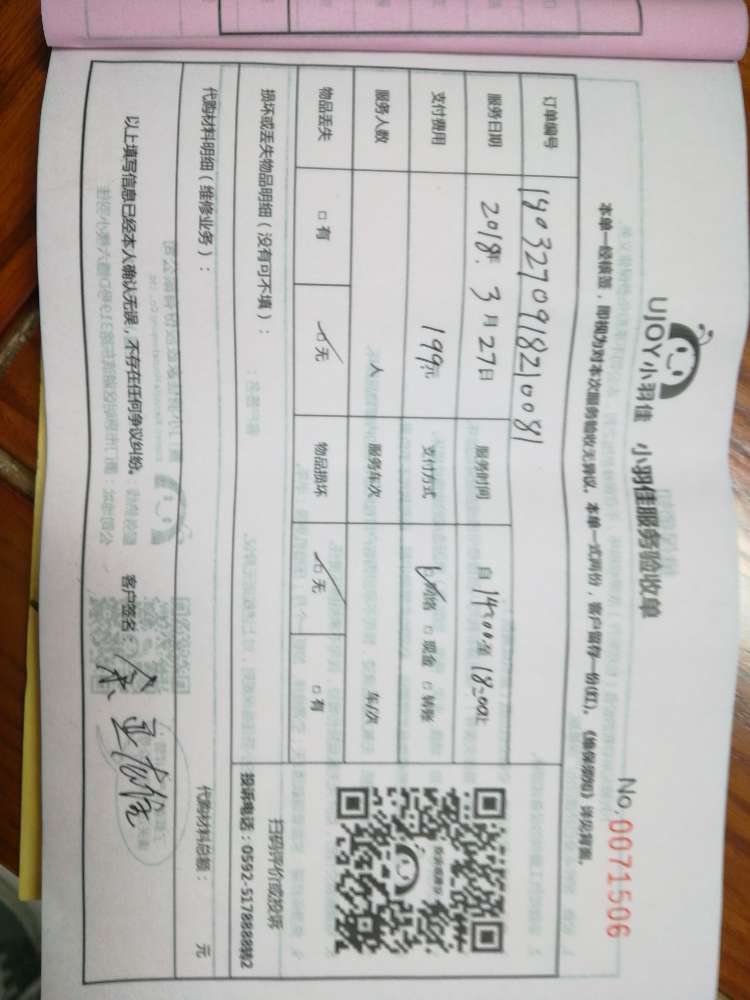 UJOY小羽佳 小羽佳服务验收单 No.0071506
本单一经核签，即视为对本次服务验收无异议。本单一式两份，客户留存一份(红)。《维保须知》详见背面。
订单编号 180327091821008 1
服务日期 2018年 3月27日 服务时间 自 14:00至 18:00止
支付费用 199元 支付方式 ☑网络 □现金 □转账
服务人数 人 服务车次 车/次
物品丢失 □有 ☑无 物品损坏 ☑无 □有
损坏或丢失物品明细（没有可不填）：
投诉或建议
扫码评价或投诉
投诉电话：0592-5178888转2
代购材料明细（维修业务）： 代购材料总额： 元
以上填写信息已经本人确认无误，不存在任何争议纠纷。 客户签名：